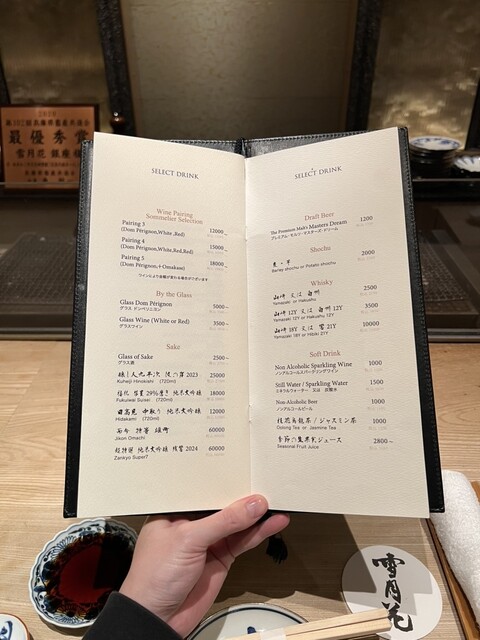 最優秀賞
雪月花 銀座
SELECT DRINK
Wine Pairing
Sommelier Selection
Pairing 3
(Dom Pérignon,White ,Red)
12000~
Pairing 4
(Dom Pérignon,White,Red,Red)
15000~
Pairing 5
(Dom Pérignon,+Omakase)
18000~
ワインにより金額が変わる場合がございます
By the Glass
Glass Dom Pérignon
グラス ドンペリニヨン
5000~
Glass Wine (White or Red)
グラスワイン
3500~
Sake
Glass of Sake
グラス酒
2500~
醸し人九平次 彼の岸 2023
Kuheiji Hinokishi (720ml)
25000
Fukuiwai Suisei (720ml)
18000
日高見 中取り 純米大吟醸
Hidakami (720ml)
12000
而今 特等 雄町
Jikon Omachi
60000
残響 2024
Zankyo Super7
60000
SELECT DRINK
Draft Beer
The Premium Malt's Masters Dream
プレミアム・モルツ マスターズ ドリーム
1200
Shochu
麦・芋
Barley shochu or Potato shochu
2000
Whisky
山崎 又は 白州
Yamazaki or Hakushu
2500
山崎 12Y 又は 白州 12Y
Yamazaki 12Y or Hakushu 12Y
3500
山崎 18Y 又は 響 21Y
Yamazaki 18Y or Hibiki 21Y
10000
Soft Drink
Non Alcoholic Sparkling Wine
ノンアルコールスパークリングワイン
1000
Still Water / Sparkling Water
ミネラルウォーター 又は 炭酸水
1500
Non Alcoholic Beer
ノンアルコールビール
1000
桂花烏龍茶 / ジャスミン茶
Oolong Tea or Jasmine Tea
1000
季節の果実ジュース
Seasonal Fruit Juice
2800~
雪月花